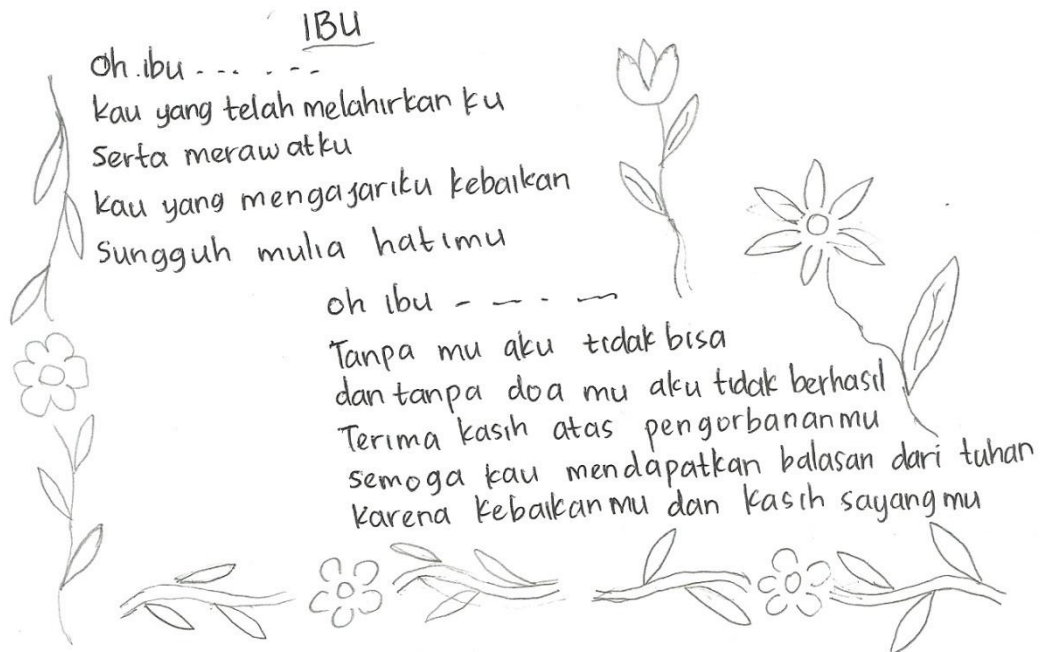 IBU
Oh ibu - - - - - -
Kau yang telah melahirkan ku
Serta merawatku
Kau yang mengajariku kebaikan
Sungguh mulia hatimu
oh ibu - - - -
Tanpa mu aku tidak bisa
dan tanpa doa mu aku tidak berhasil
Terima kasih atas pengorbananmu
semoga kau mendapatkan balasan dari tuhan
Karena kebaikanmu dan kasih sayangmu